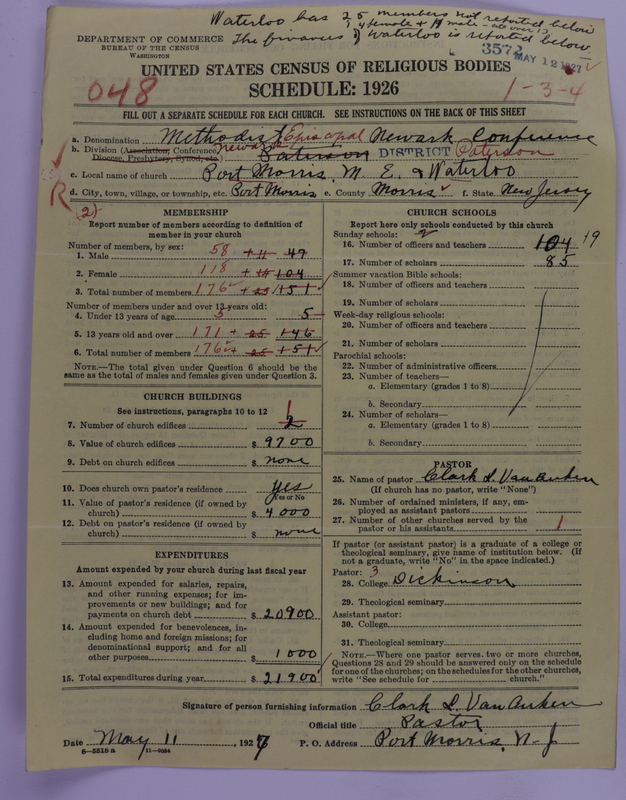 Waterloo has 25 members not reported below
The finances of Waterloo is reported below
DEPARTMENT OF COMMERCE
BUREAU OF THE CENSUS
WASHINGTON
3572 MAY 12 1927
UNITED STATES CENSUS OF RELIGIOUS BODIES
SCHEDULE: 1926
048
1-3-4
FILL OUT A SEPARATE SCHEDULE FOR EACH CHURCH. SEE INSTRUCTIONS ON THE BACK OF THIS SHEET
a. Denomination Methodist Episcopal Newark Conference
b. Division (Association, Conference, Diocese, Presbytery, Synod, etc.) Newark Paterson DISTRICT Paterson
c. Local name of church Port Morris, M. E. & Waterloo
d. City, town, village, or township, etc. Port Morris e. County Morris f. State New Jersey
R (2)
MEMBERSHIP
Report number of members according to definition of
member in your church
Number of members, by sex:
1. Male 58 + 11 47
2. Female 118 + 14 104
3. Total number of members 176 + 25 151
Number of members under and over 13 years old:
4. Under 13 years of age 5 5
5. 13 years old and over 171 + 25 146
6. Total number of members 176 + 25 151
NOTE.—The total given under Question 6 should be the
same as the total of males and females given under Question 3.
CHURCH BUILDINGS
See instructions, paragraphs 10 to 12
7. Number of church edifices 1 2
8. Value of church edifices $ 9700
9. Debt on church edifices $ none
10. Does church own pastor's residence yes
Yes or No
11. Value of pastor's residence (if owned by
church) $ 4000
12. Debt on pastor's residence (if owned by
church) $ none
EXPENDITURES
Amount expended by your church during last fiscal year
13. Amount expended for salaries, repairs,
and other running expenses; for im-
provements or new buildings; and for
payments on church debt $ 20900
14. Amount expended for benevolences, in-
cluding home and foreign missions; for
denominational support; and for all
other purposes $ 1000
15. Total expenditures during year $ 21900
CHURCH SCHOOLS
Report here only schools conducted by this church
Sunday schools: 2
16. Number of officers and teachers 104 19
17. Number of scholars 85
Summer vacation Bible schools:
18. Number of officers and teachers
19. Number of scholars
Week-day religious schools:
20. Number of officers and teachers
21. Number of scholars
Parochial schools:
22. Number of administrative officers
23. Number of teachers—
a. Elementary (grades 1 to 8)
b. Secondary
24. Number of scholars—
a. Elementary (grades 1 to 8)
b. Secondary
PASTOR
25. Name of pastor Clark L. Van Auken
(If church has no pastor, write "None")
26. Number of ordained ministers, if any, em-
ployed as assistant pastors
27. Number of other churches served by the
pastor or his assistants 1
If pastor (or assistant pastor) is a graduate of a college or
theological seminary, give name of institution below. (If
not a graduate, write "No" in the space indicated.)
Pastor: 3
28. College Dickinson
29. Theological seminary
Assistant pastor:
30. College
31. Theological seminary
NOTE.—Where one pastor serves two or more churches,
Questions 28 and 29 should be answered only on the schedule
for one of the churches; on the schedules for the other churches,
write "See schedule for church."
Signature of person furnishing information Clark L. Van Auken
Official title Pastor
Date May 11, 1927 P. O. Address Port Morris, N. J.
8—5516 a 11—9054